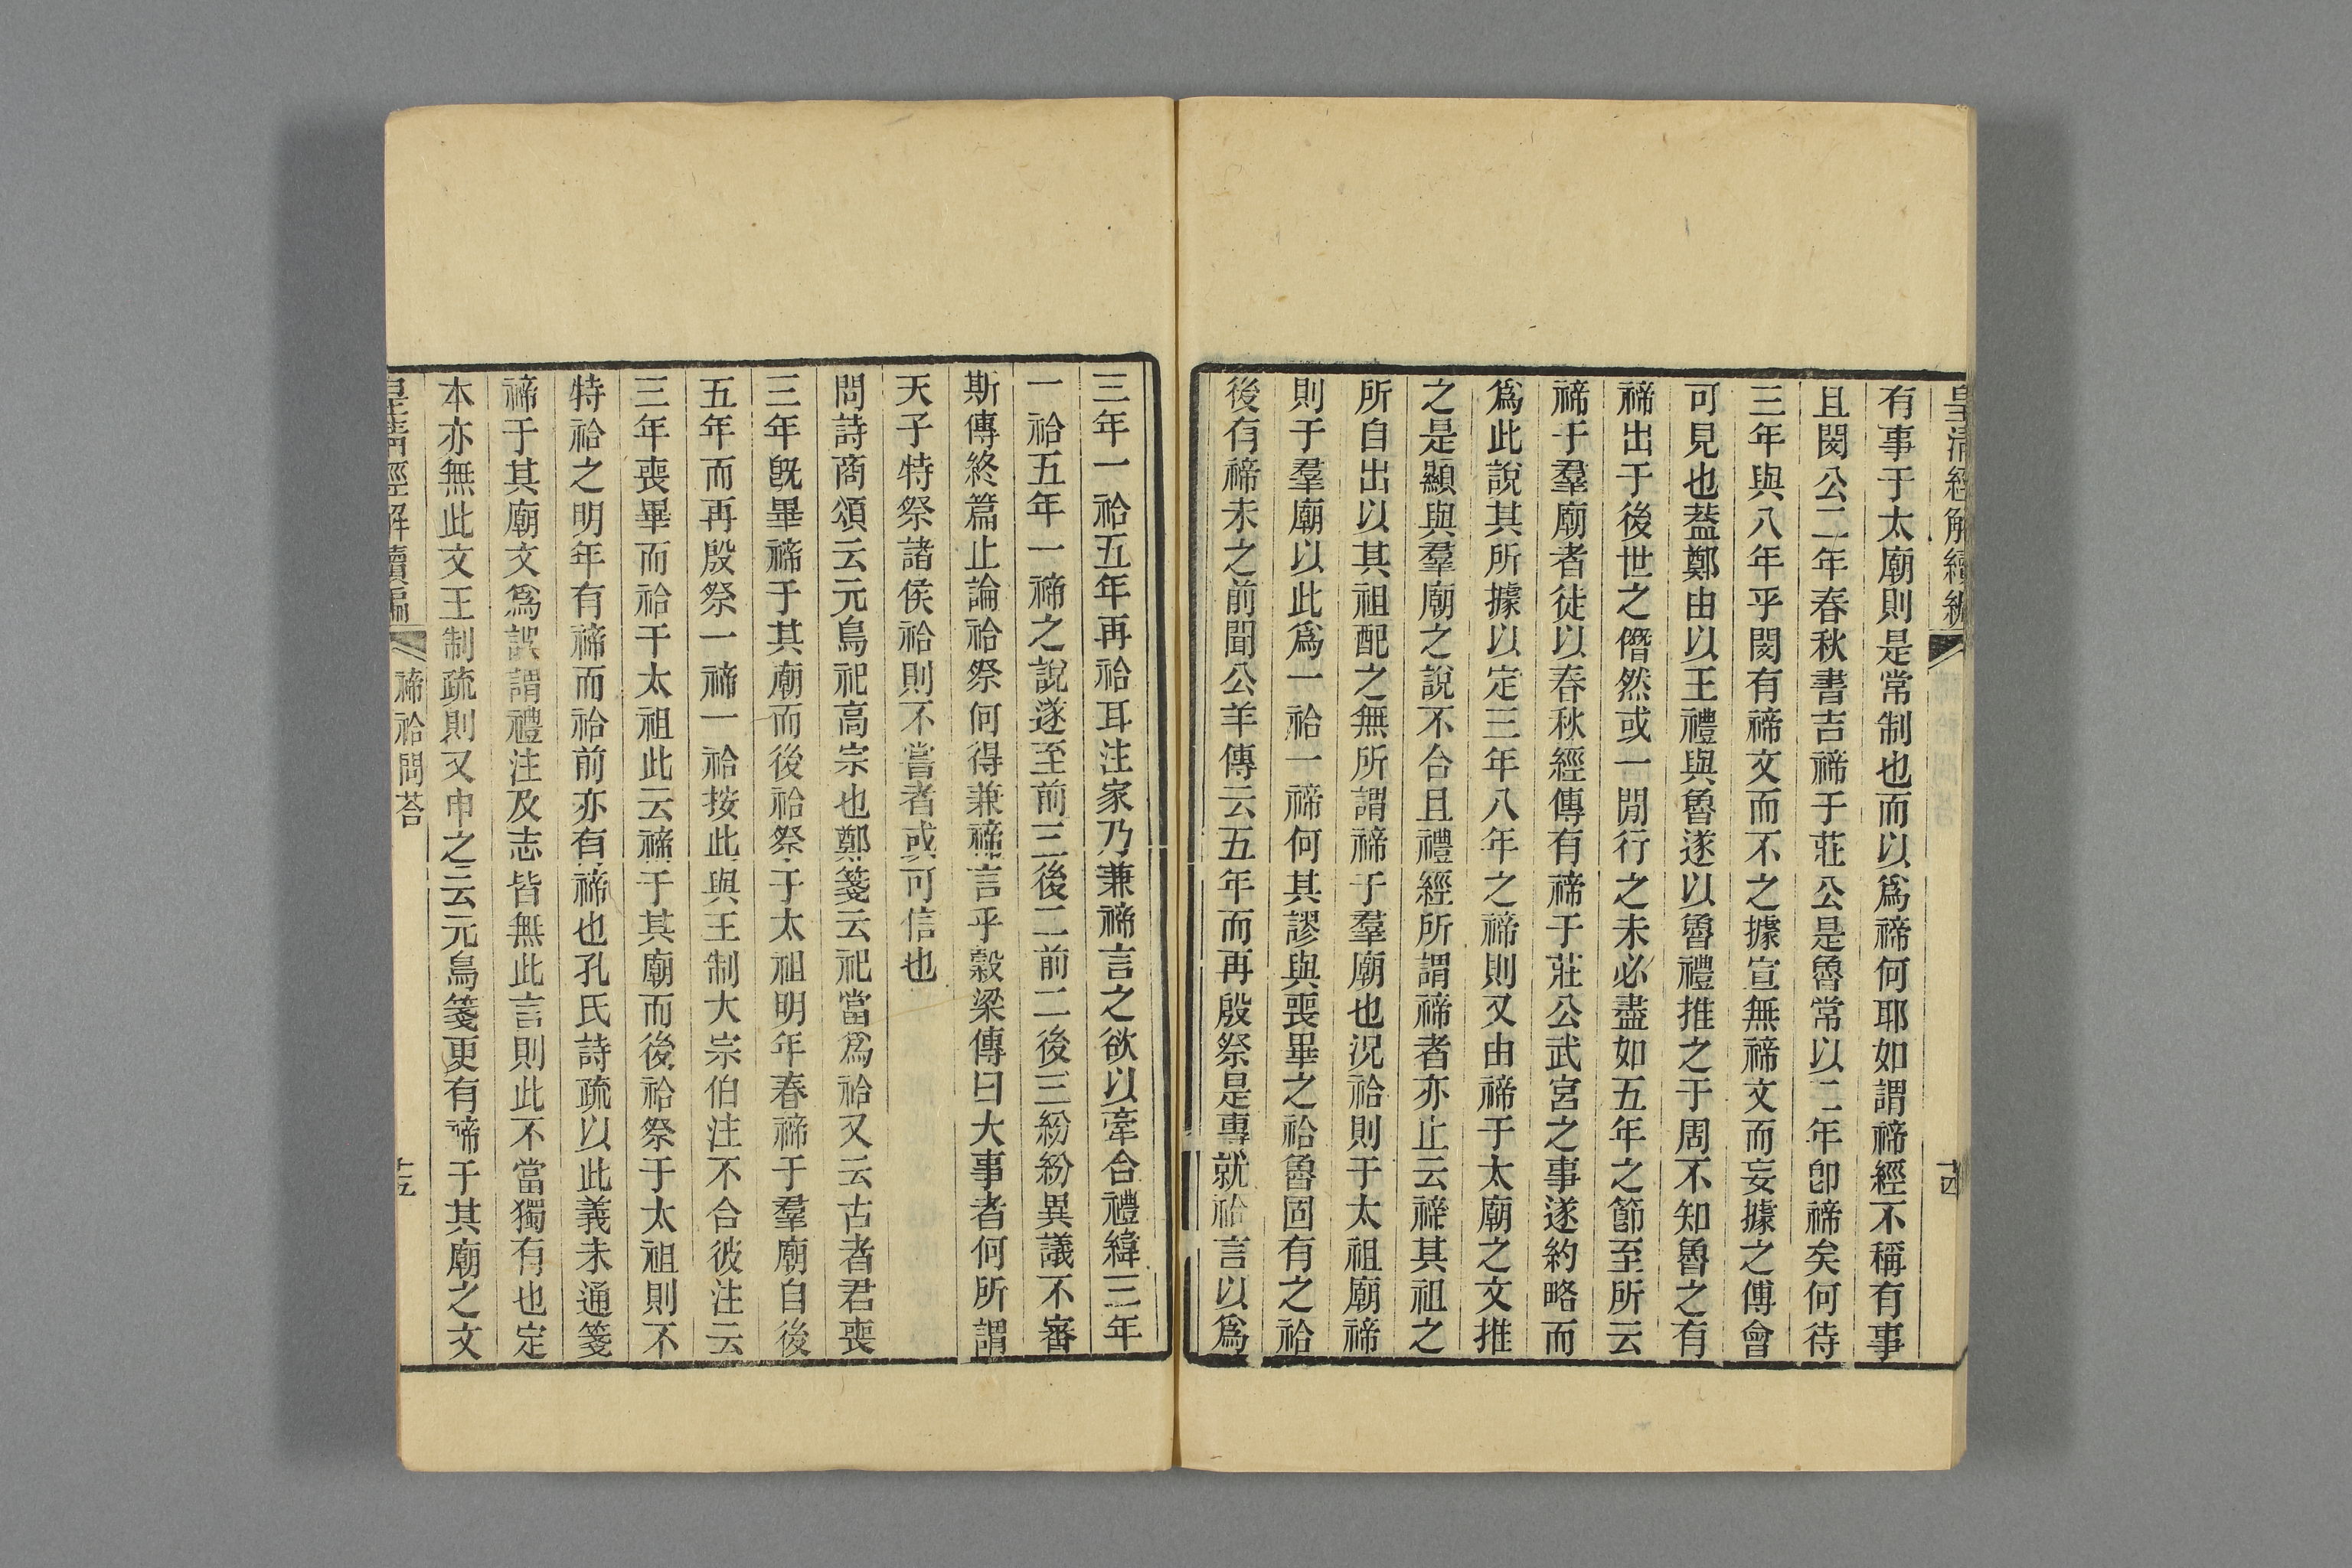 皇清經解續編
十四
有事于太廟則是常制也而以爲禘何耶如謂禘經不稱有事
且閔公二年春秋書吉禘于莊公是魯常以二年卽禘矣何待
三年與八年乎閔有禘文而不之據宣無禘文而妄據之傅會
可見也葢鄭由以王禮與魯遂以魯禮推之于周不知魯之有
禘出于後世之僭然或一閒行之未必盡如五年之節至所云
禘于羣廟者徒以春秋經傳有禘于莊公武宮之事遂約略而
爲此說其所據以定三年八年之禘則又由禘于太廟之文推
之是顯與羣廟之說不合且禮經所謂禘者亦止云禘其祖之
所自出以其祖配之無所謂禘于羣廟也況祫則于太祖廟禘
則于羣廟以此爲一祫一禘何其謬與喪畢之祫魯固有之祫
後有禘未之前聞公羊傳云五年而再殷祭是專就祫言以爲
三年一祫五年再祫耳注家乃兼禘言之欲以牽合禮緯三年
一祫五年一禘之說遂至前三後二前二後三紛紛異議不審
斯傳終篇止論祫祭何得兼禘言乎穀梁傳曰大事者何所謂
天子特祭諸侯祫則不嘗者或可信也
問詩商頌云元鳥祀高宗也鄭箋云祀當爲祫又云古者君喪
三年旣畢禘于其廟而後祫祭于太祖明年春禘于羣廟自後
五年而再殷祭一禘一祫按此與王制大宗伯注不合彼注云
三年喪畢而祫于太祖此云禘于其廟而後祫祭于太祖則不
特祫之明年有禘而祫前亦有禘也孔氏詩疏以此義未通箋
禘于其廟文爲誤謂禮注及志皆無此言則此不當獨有也定
本亦無此文王制疏則又申之云元鳥箋更有禘于其廟之文
皇清經解續編
禘祫問荅
十五